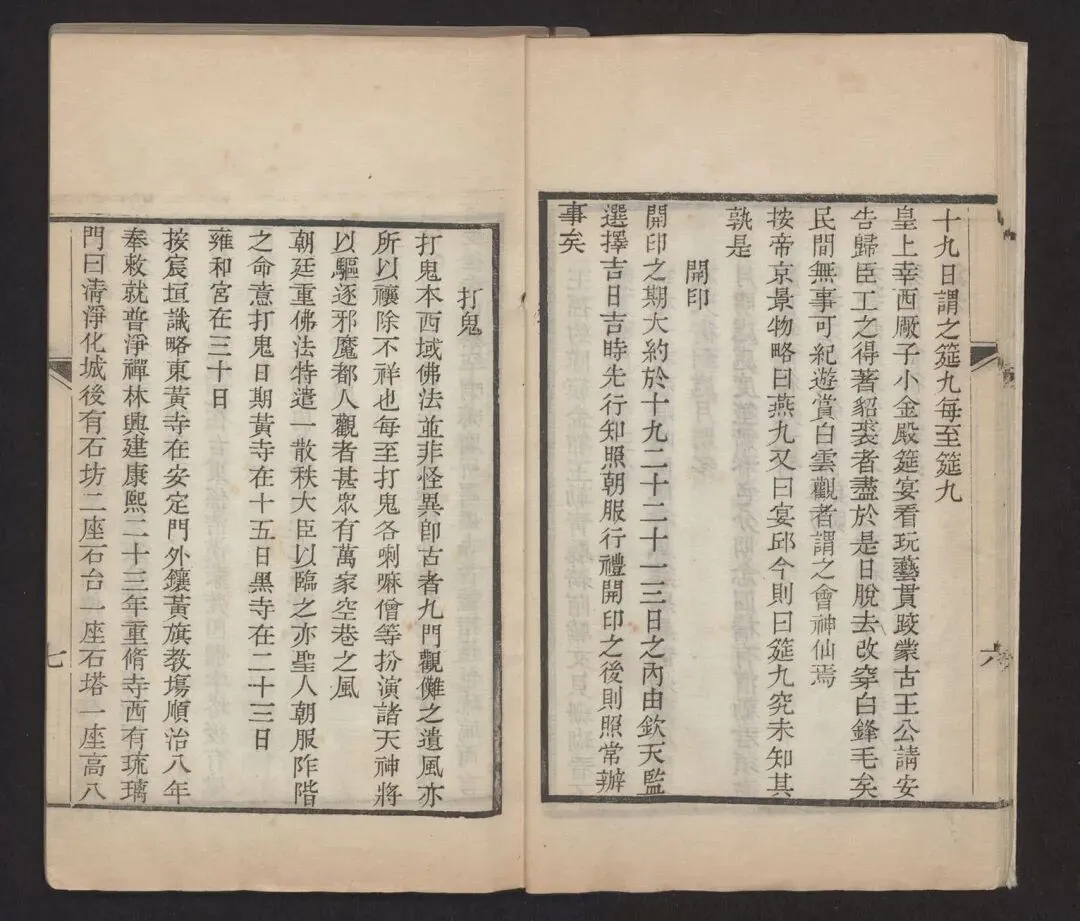 十九日謂之筵九每至筵九
皇上幸西廠子小金殿筵宴看玩藝貫跤蒙古王公請安
告歸臣工之得著貂裘者盡於是日脫去改穿白鋒毛矣
民間無事可紀遊賞白雲觀者謂之會神仙焉
按帝京景物略曰燕九又曰宴邱今則曰筵九究未知其
孰是
開印
開印之期大約於十九二十二十一三日之內由欽天監
選擇吉日吉時先行知照朝服行禮開印之後則照常辦
事矣
六
打鬼
打鬼本西域佛法並非怪異卽古者九門觀儺之遺風亦
所以禳除不祥也每至打鬼各喇嘛僧等扮演諸天神將
以驅逐邪魔都人觀者甚眾有萬家空巷之風
朝廷重佛法特遣一散秩大臣以臨之亦聖人朝服阼階
之命意打鬼日期黃寺在十五日黑寺在二十三日
雍和宮在三十日
按宸垣識略東黃寺在安定門外鑲黃旗教塲順治八年
奉敕就普淨禪林興建康熙二十三年重脩寺西有琉璃
門曰清淨化城後有石坊二座石台一座石塔一座高八
七